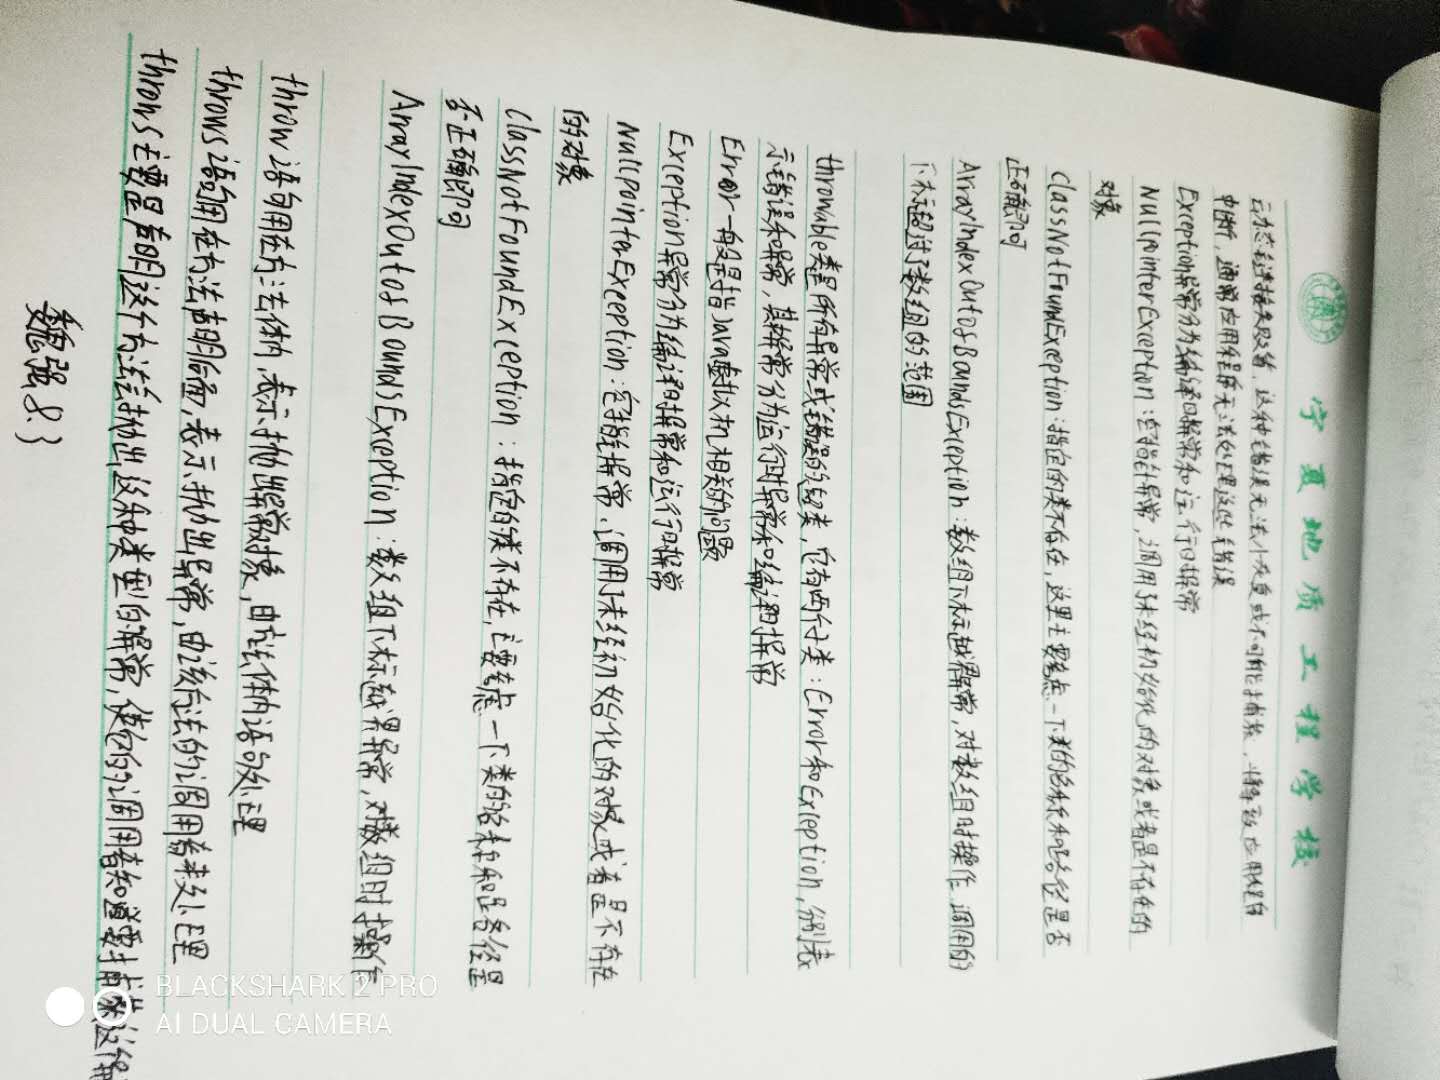 宁夏地质工程学校
动态链接失败等，这种错误无法恢复或不可能捕获，将导致应用程序
中断，通常应用程序无法处理这些错误
Exception异常分为编译时异常和运行时异常
NullpointerException：空指针异常，调用了未经初始化的对象或者是不存在的
对象
ClassNotFoundException：指定的类不存在，这里主要考虑一下类的名称和路径是否
正确即可
ArrayIndexOutofBoundsException：数组下标越界异常，对数组时操作，调用的
下标超过了数组的范围
throwable类是所有异常或错误的超类，它有两个子类：Error和Exception，分别表
示错误和异常，其异常分为运行时异常和编译时异常
Error一般是指Java虚拟机相关的问题
Exception异常分为编译时异常和运行时异常
NullpointerException：空指针异常、调用了未经初始化的对象或者是不存在
的对象
ClassNotFoundException：指定的类不存在，主要考虑一下类的名称和路径是
否正确即可
ArrayIndexOutofBoundsException：数组下标越界异常，对数组时操作
throw语句用在方法体内，表示抛出异常对象，由方法体内语句处理
throws语句用在方法声明后面，表示抛出异常，由该方法的调用者来处理
throws主要是声明这个方法会抛出这种类型的异常，使它的调用者知道要捕获这个异
魏强 8.3
BLACKSHARK 2 PRO
AI DUAL CAMERA